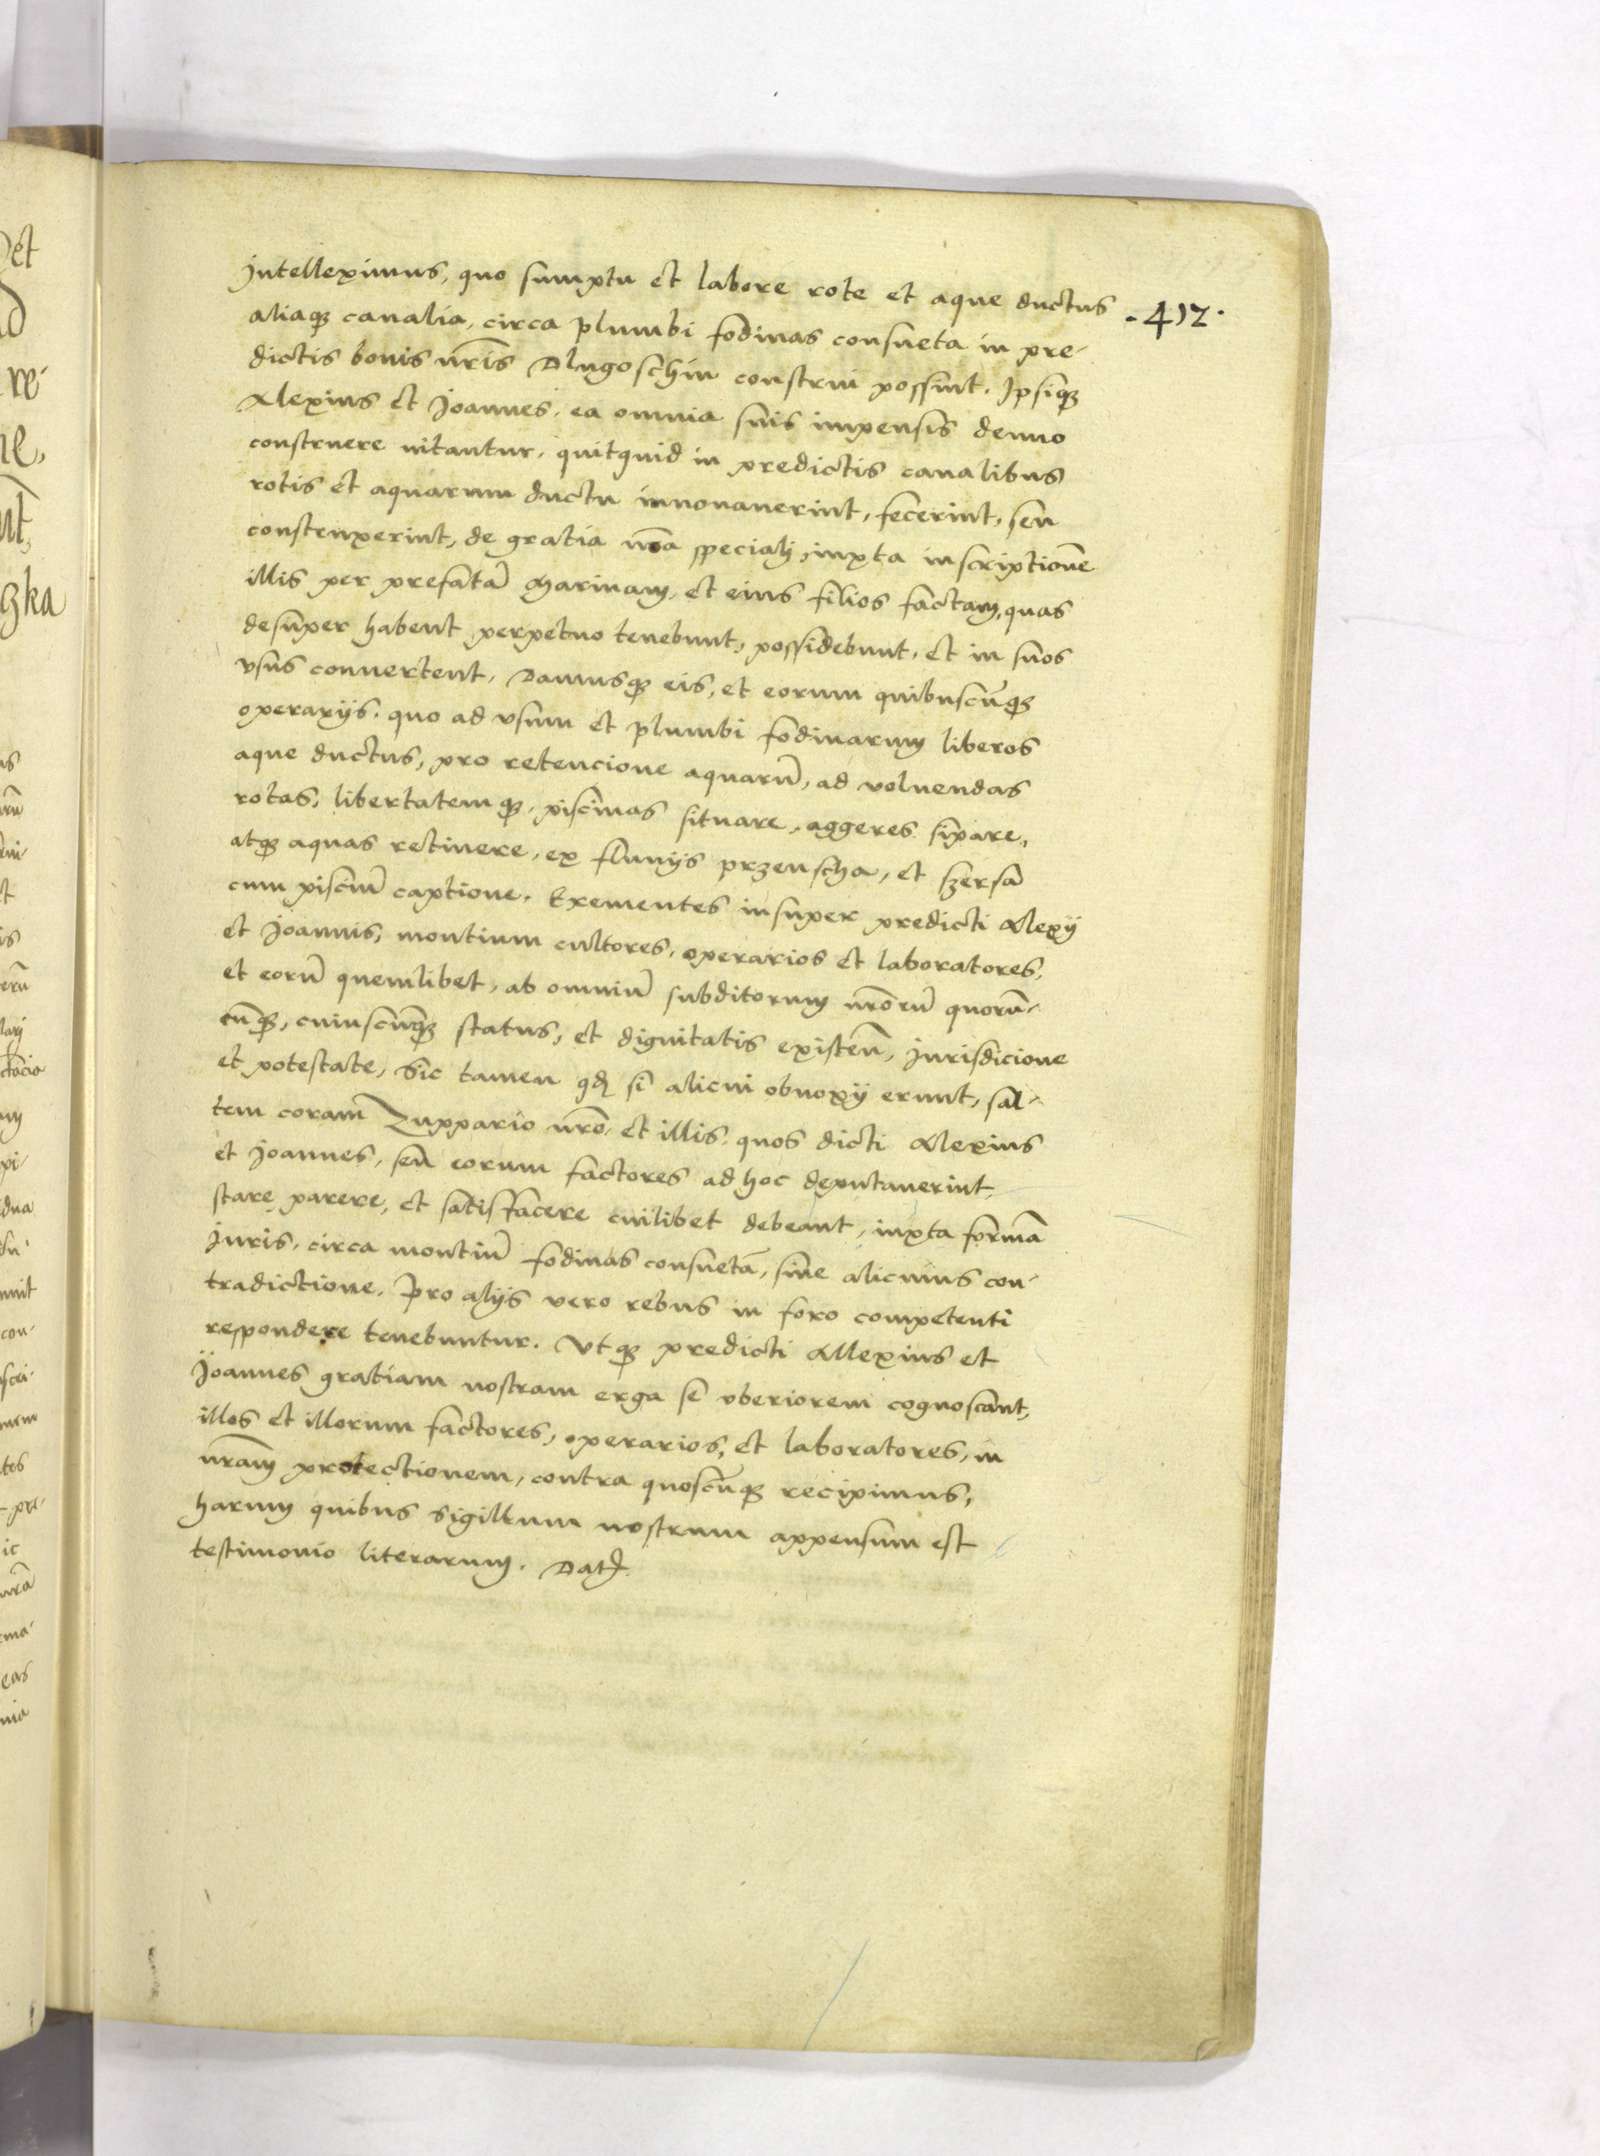 intelleximus, quo sumptu et labore rote et aque ductus
·412·
aliaq3 canalia, circa plumbi fodinas consueta in pre-
dictis bonis nr̃is Dlugoschin construi possint. Ipsiq3
Alexius et Joannes, ea omnia suis impensis denuo
construere nitantur, quitquid in predictis canalibus
rotis et aquarum ductu innovaverint, fecerint, seu
construxerint, de gratia nr̃a speciali, iuxta inscriptionẽ
illis per prefatã Marinam, et eius filios factam, quas
desuper habent perpetuo tenebunt, possidebunt, et in suos
vsus convertent. Damusq3 eis, et eorum quibuscũq3
operarijs, quo ad vsum et plumbi fodinarum liberos
aque ductus, pro retencione aquarũ, ad volvendas
rotas, libertatemq3, piscinas situare, aggeres sipare,
atq3 aquas retinere, ex fluvijs przenscha, et szersa
cum pisciũ captione. Exementes insuper predicti Alexij
et Joannis, montium cultores, operarios et laboratores,
et eorũ quemlibet, ab omniũ subditorum nr̃orũ quorũ-
cũq3, cuiuscũq3 status, et dignitatis existeñ, iurisdicione
et potestate, Sic tamen qd si alicui obnoxij erunt, sal-
tem coram Zuppario nr̃o, et illis, quos dicti Alexius
et Joannes, seu eorum factores ad hoc deputaverint,
stare, parere, et satisfacere cuilibet debeant, iuxta formã
Juris, circa montiũ fodinas consuetã, sine alicuius con-
tradictione. Pro alijs vero rebus in foro competenti
respondere tenebuntur. Vtq3 predicti Allexius et
Joannes gratiam nostram erga se vberiorem cognoscant,
illos et illorum factores, operarios, et laboratores, in
nr̃am protectionem, contra quoscũq3 recipimus,
harum quibus Sigillum nostrum appensum est
testimonio literarum. Dat